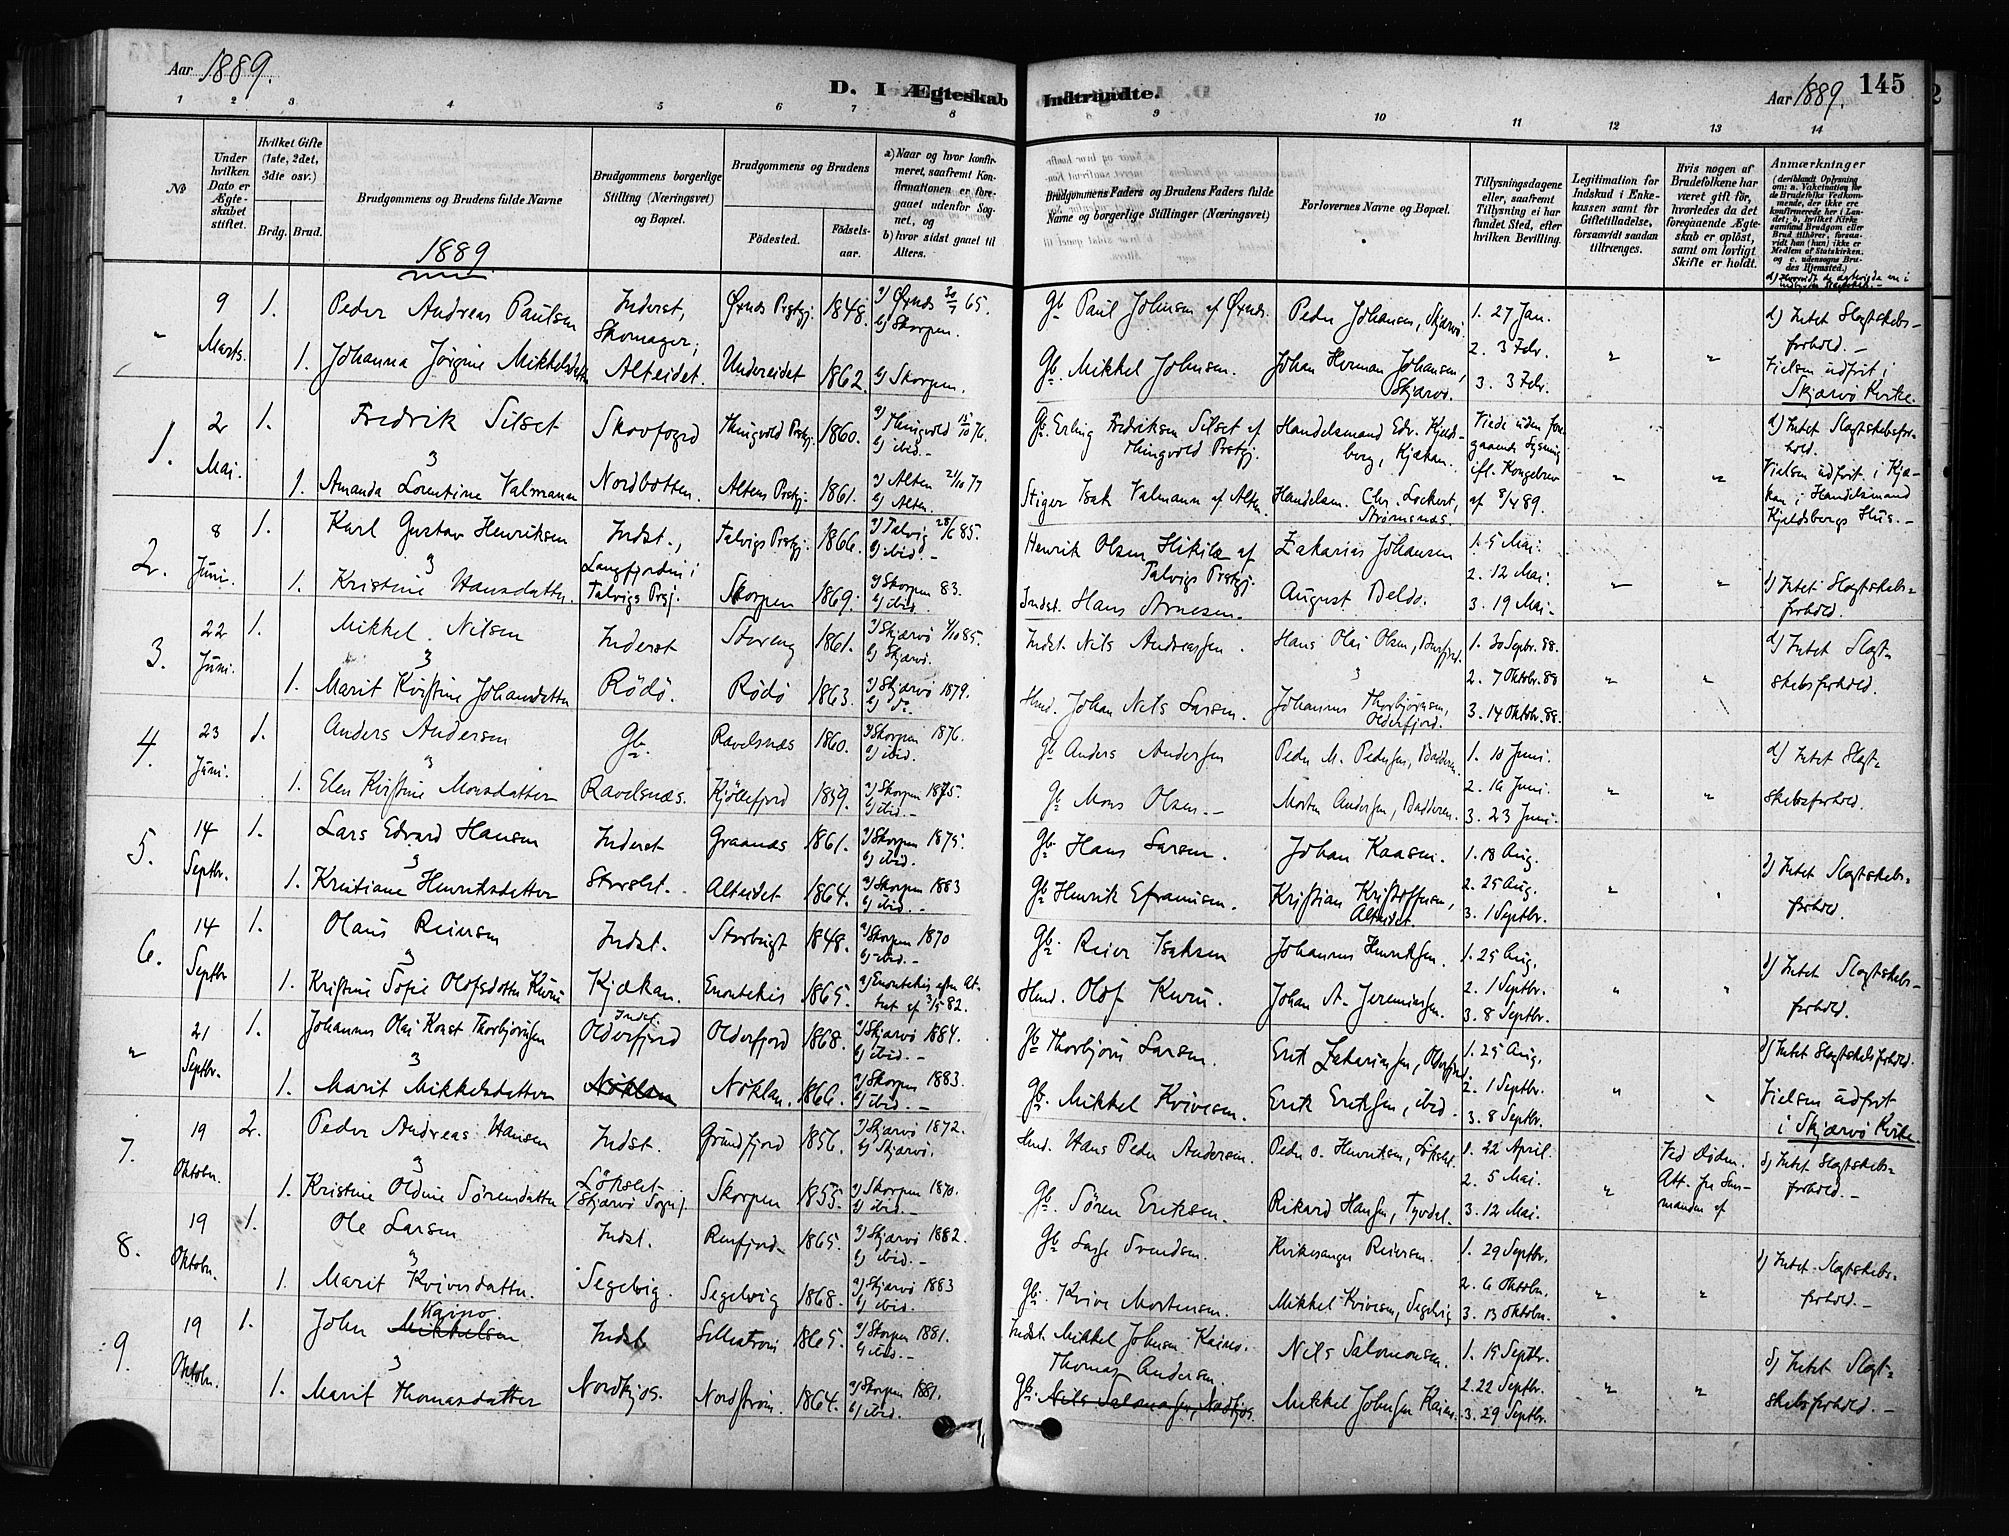 Aar 1889.
D. I Ægteskab Indtraadte.
Aar 1889.
145
1 2 3 4 5 6 7 8 9 10 11 12 13 14
No
Under hvilken Dato er Ægteskabet stiftet.
Hvilket Gifte (1ste, 2det, 3die osv.)
Brdg. Brud.
Brudgommens og Brudens fulde Navne
Brudgommens borgerlige Stilling (Næringsvei) og Bopæl.
Brudgommens og Brudens
Fødested.
Fødselsaar.
a) Naar og hvor konfirmeret, saafremt Konfirmationen er foregaaet udenfor Sognet, og
b) hvor sidst gaaet til Alters.
Brudgommens Faders og Brudens Faders fulde Navne og borgerlige Stillinger (Næringsvei)
Forlovernes Navne og Bopæl.
Tillysningsdagene eller, saafremt Tillysning ei har fundet Sted, efter hvilken Bevilling.
Legitimation for Indskud i Enkekassen samt for Giftetilladelse, forsaavidt saadan tiltrænges.
Hvis nogen af Brudefolkene har været gift før, hvorledes da det foregaaende Ægteskab er opløst, samt om lovligt Skifte er holdt.
Anmærkninger
(deriblandt Oplysning om: a. Vakcination for de Brudefolks Vedkommende, der ikke ere konfirmerede her i Landet; b. hvilket Kirkesamfund Brudgom eller Brud tilhører, forsaavidt han (hun) ikke er Medlem af Statskirken, og c. udensogns Brudes Hjemsted.)
1889
" 9 Marts. 1. Peder Andreas Paulsen Inderst, Skomager; Øxnes Prstgj. 1848. a) Øxnes 30/7 65. b) Skorpen. Gb. Paul Johnsen af Øxnes. Peder Johansen, Skjærvø. 1. 27 Jan. d) Intet Slagtskabsforhold. —
1. Johanna Jørgine Mikkelsdatter Alteidet. Undereidet 1862 b) Skorpen. Gb. Mikkel Johnsen. Johan Herman Johansen, Skjærvø. 2. 3 Febr. 3. 3 Febr. " " Vielsen udført i Skjærvø Kirke.
1. 2 Mai 1. Fredrik Silset Skovfoged Thingvold Prstgj. 1860. a) Thingvold 15/10 76. b) ibid. — Gb. Erling Fredriksen Silset af Thingvold Prstgj. Handelsmand Edv. Kjeldsberg, Kjækan. Viede uden foregaaende Lysning ifl. Kongebrev af 8/4 89. d) Intet Slagtskabsforhold.
1. Amanda Lorentine Valmann Nordbotten. Altens Prstgj. 1861. a) Alten 21/10 77 b) Alten. Stiger Isak Valmann af Alten. Handelsm. Chr. Lockert, Strømsnæs. " " Vielsen udført i Kjækan i Handelsmand Kjeldsbergs Hus. —
2. 8 Juni. 1. Karl Gustav Henriksen Indst., Langfjorden i Talvigs Prgj. Talvigs Prstgj. 1866. a) Talvig 28/6 85. b) ibid. — Henrik Olsen Hikilæ af Talvigs Prstgj. Zakarias Johansen 1. 5 Mai. 2. 12 Mai.
1. Kristine Hansdatter. Skorpen 1869. a) Skorpen 83. b) ibid. Indst. Hans Arnesen. August Beldo. 3. 19 Mai — " " d) Intet Slagtskabsforhold.
3. 22 Juni. 1. Mikkel Nilsen Inderst Storeng 1861. a) Skjærvø 4/10 85. b) Skjærvø. Indst. Nils Andreassen. Hans Olai Olsen, 1. 30 Septbr. 88. d) Intet Slagtskabsforhold.
1. Marit Kristine Johansdatter Rödö. Rödö 1863. a) Skjærvø 1879. b) do. Hmd. Johan Nils Larsen. Johannes Thorbjörnsen, Olderfjord. 2. 7 Oktobr. 88 3. 14 Oktobr. 88. " "
4. 23 Juni. 1. Anders Andersen Gb. Ravelsnæs 1860. a) Skorpen 1876. b) ibid. Gb. Anders Andersen Peder M. Pedersen, Badderen. 1. 10 Juni. d) Intet Slagtskabsforhold.
1. Elen Kristine Monsdatter Ravelsnæs. Kjöllefjord 1859. a) Skorpen 1875. b) ibid. — Gb. Mons Olsen. — Morten Andersen, Badderen. 2. 16 Juni. 3. 23 Juni. " "
5. 14 Septbr. 1. Lars Edvard Hansen Inderst Graanæs 1861. a) Skorpen 1875. b) ibid. Gb. Hans Larsen. Johan Kaasen. 1. 18 Aug. d) Intet Slagtskabsforhold.
1. Kristiane Henriksdatter Storslet. Alteidet 1864. a) Skorpen 1883 b) ibid. — Gb. Henrik Efraimsen. Kristian Kristoffersen, Alteidet. 2. 25 Aug. 3. 1 Septbr. " "
6. 14 Septbr 1. Olaus Reiersen Indst. Storbugt 1848. a) Skorpen 1870 b) ibid. — Gb. Reier Isaksen Johannes Henriksen. 1. 25 Aug. d) Intet Slagtskabsforhold.
1. Kristine Sofie Olofsdatter Kuru Kjækan. Enontekis 1865. a) Enontekis efter Attest af 3/5 82. Hmd. Olof Kuru. Johan A. Jeremiassen. 2. 1 Septbr. 3. 8 Septbr. " "
" 21 Septbr. 1. Johannes Olai Konst Thorbjörnsen Indst. Olderfjord Olderfjord 1868. a) Skjærvö 1884. b) ibid. — Gb. Thorbjörn Larsen. Erik Zakariassen, Olderfjord. 1. 25 Aug. d) Intet Slagtskabsforhold.
1. Marit Mikkelsdatter Nöklan Nöklan. 1866. a) Skorpen 1883. b) ibid. — Gb. Mikkel Kvivesen. Erik Eriksen, ibid. 2. 1 Septbr. 3. 8 Septbr. " " Vielsen udført i Skjærvø Kirke.
7. 19 Oktobr. 2. Peder Andreas Hansen Indst. Grundfjord 1856. a) Skjærvö 1872. b) Skjærvö. Hmd. Hans Peder Andersen. Peder O. Henriksen, 1. 22 April Ved Döden. Att. fra Lensmanden af d) Intet Slagtskabsforhold. —
1. Kristine Oldine Sörensdatter Lökslet (Skjærvö Sogn). Skorpen 1855. a) Skorpen 1870. b) ibid. — Gb. Sören Eriksen. Rikard Hansen, Tyvdal. 2. 5 Mai. 3. 12 Mai. "
8. 19 Oktobr. 1. Ole Larsen Indst. Reinfjord — 1865. a) Skjærvö 1882. b) ibid. — Gb. Lasse Svendsen. Kirkesanger Reiersen. 1. 29 Septbr. d) Intet Slagtskabsforhold. —
1. Marit Kvivesdatter. Segelvig. Segelvig 1868. a) Skjærvö 1883 b) ibid. Gb. Kvive Mortensen. Mikkel Kvivesen, Segelvig 2. 6 Oktobr. 3. 13 Oktobr. " "
9. 19 Oktobr. 1. John Mikkelsen Kaino Indst. 1865. a) Skorpen 1881. b) ibid. — Indst. Mikkel Johnsen Kaino. Nils Salomonsen. 1. 15 Septbr. d) Intet Slagtskabsforhold. —
1. Marit Thomasdatter Nordkjos. Nordström. 1864. a) Skorpen 1881. b) ibid. Thomas Andersen. Gb. Nils Salomonsen, Nordkjos. Mikkel Johnsen Kaino. 2. 22 Septbr. 3. 29 Septbr. " "